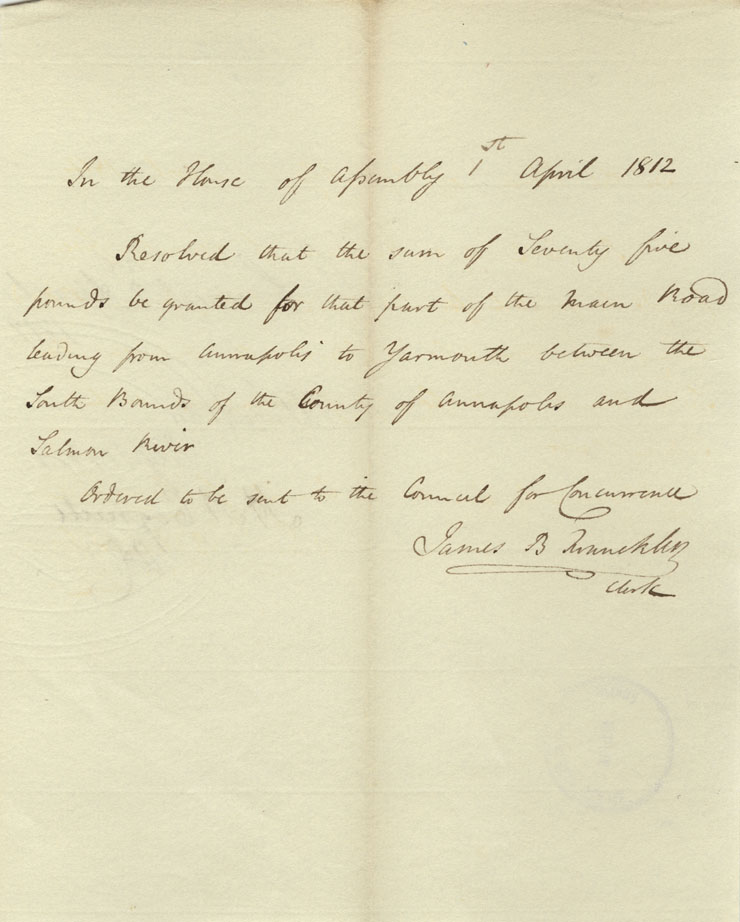 In the House of Assembly 1st April 1812
Resolved that the sum of Seventy five
pounds be granted for that part of the Main Road
leading from Annapolis to Yarmouth between the
South Bounds of the County of Annapolis and
Salmon River
Ordered to be sent to the Council for Concurrence
James B Francklin
Clerk